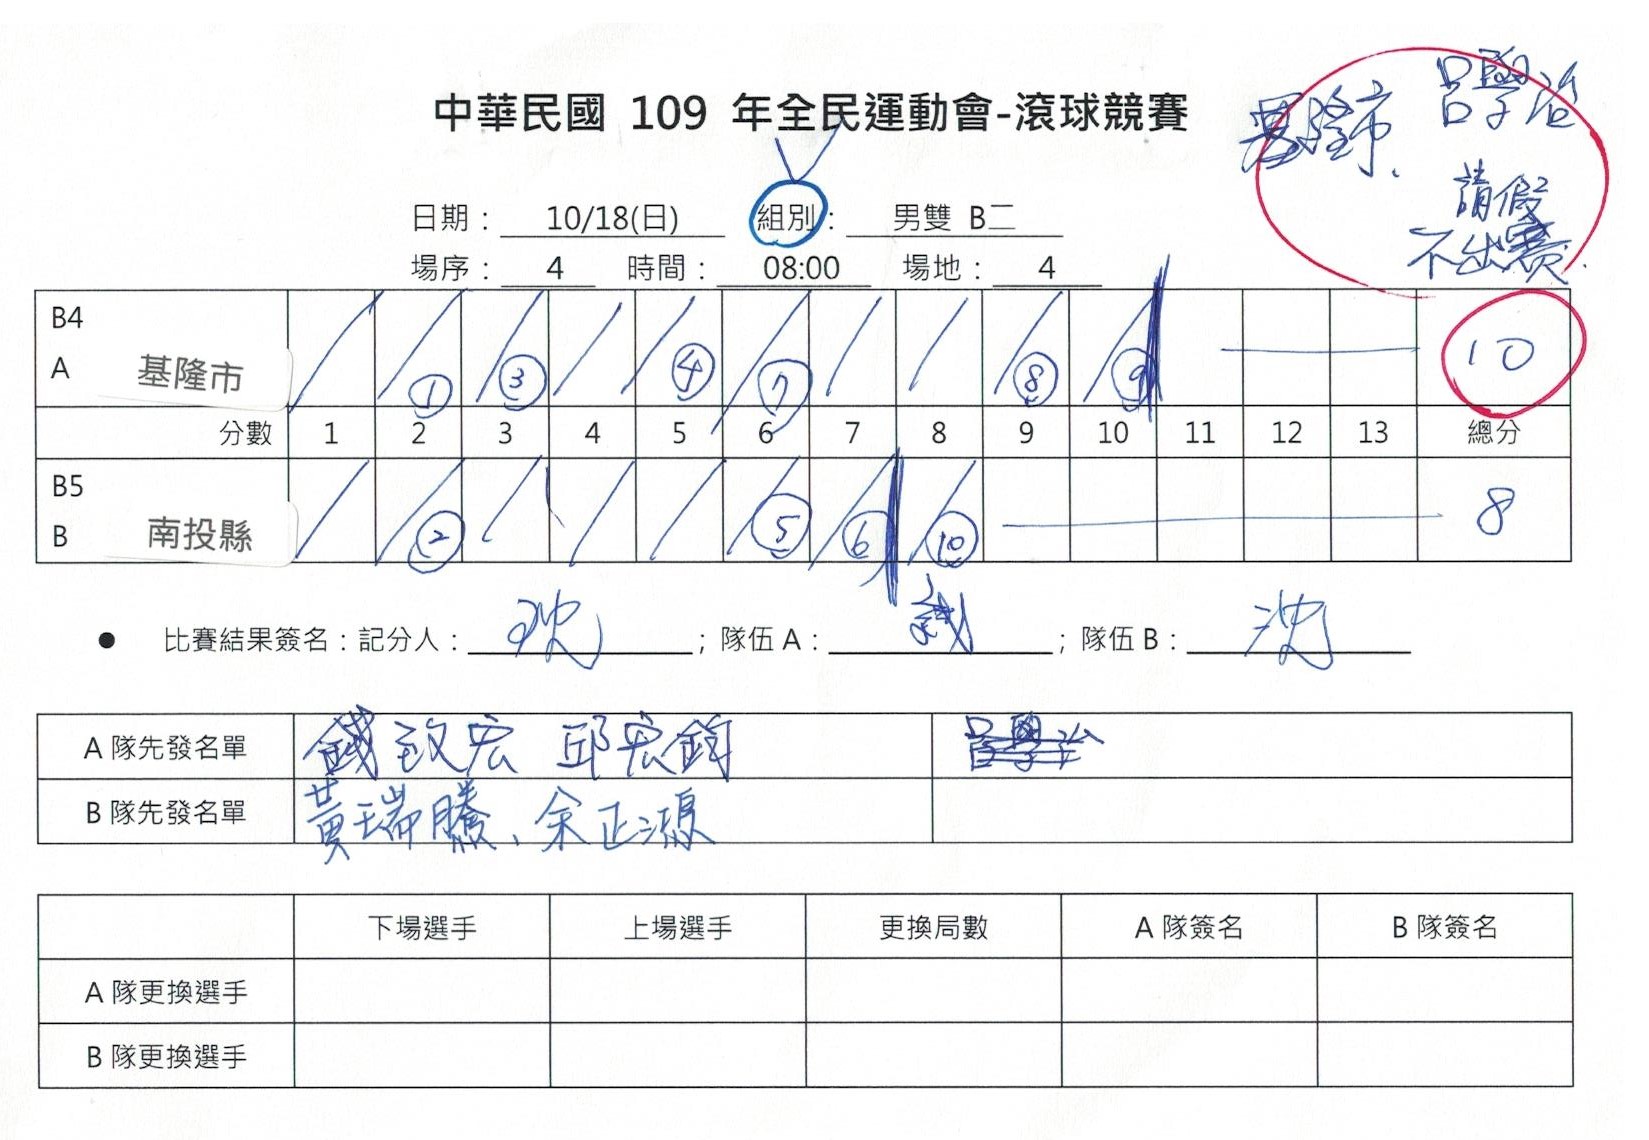 中華民國 109 年全民運動會-滾球競賽
基隆市. 呂學治
請假
不出賽.
日期： 10/18(日) 組別： 男雙 B二
場序： 4 時間： 08:00 場地： 4
B4
A 基隆市 ① ③ ④ ⑦ ⑧ ⑨ 10
分數 1 2 3 4 5 6 7 8 9 10 11 12 13 總分
B5
B 南投縣 ② ⑤ ⑥ ⑩ 8
● 比賽結果簽名：記分人： 沈 ；隊伍 A： 錢 ；隊伍 B： 沈
A 隊先發名單 錢致宏 邱宏鈞 呂學治
B 隊先發名單 黃瑞騰、余正源
下場選手 上場選手 更換局數 A 隊簽名 B 隊簽名
A 隊更換選手
B 隊更換選手